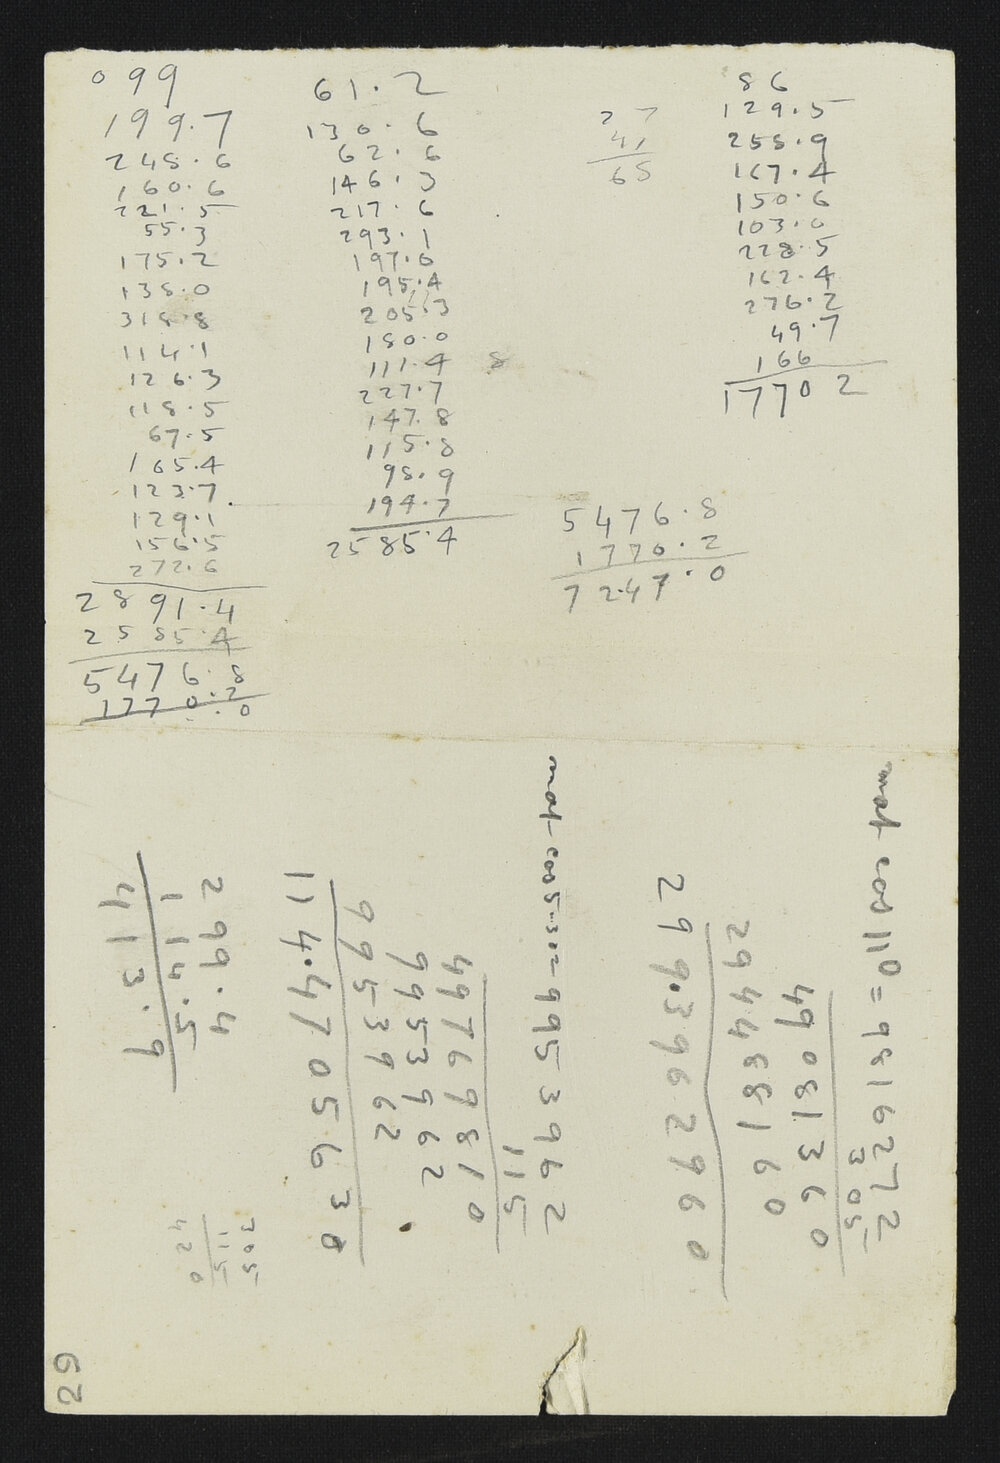 0 99
199.7
248.6
160.6
221.5
55.3
175.2
138.0
318.8
114.1
126.3
118.5
67.5
165.4
123.7
129.1
156.5
272.6
2891.4
2585.4
5476.8
1770.2
.0
61.2
130.6
62.6
146.3
217.6
293.1
197.6
195.4
205.3
180.0
111.4 8
227.7
147.8
115.8
98.9
194.7
2585.4
27
41
65
86
129.5
258.9
167.4
150.6
103.0
228.5
162.4
276.2
49.7
166
17702
5476.8
1770.2
7247.0
cos 110 = 9816272
305
49081360
294488160
299.3962960
cos 5.31 = 9953962
115
49769810
9953962
9953962
114.4705630
299.4
114.5
413.9
305
115
420
29